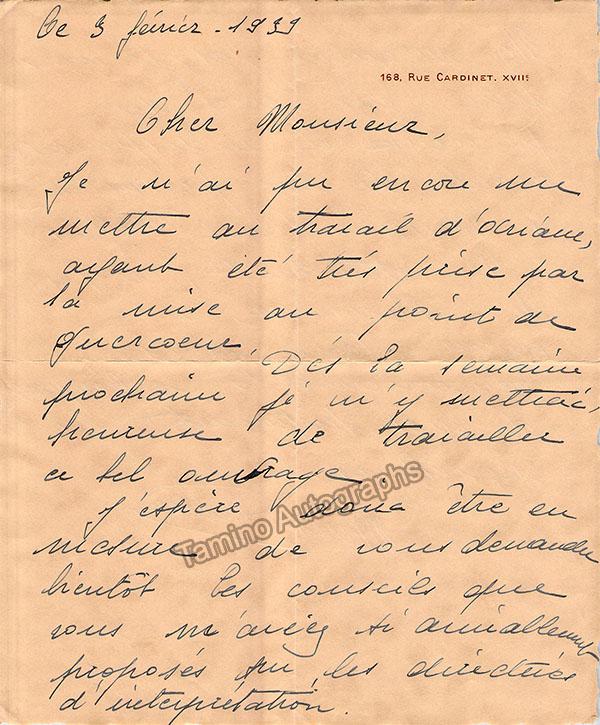 Ce 3 février - 1939
168, RUE CARDINET. XVIIE
Cher Monsieur,
Je n'ai pu encore me
mettre au travail d'Oriane,
ayant été très prise par
la mise au point de
Guercoeur. Dès la semaine
prochaine je m'y mettrai,
heureuse de travailler
ce bel ouvrage.
J'espère donc être en
mesure de vous demander
bientôt les conseils que
vous m'avez si aimablement
proposés sur les directives
d'interprétation.
Tamino Autographs